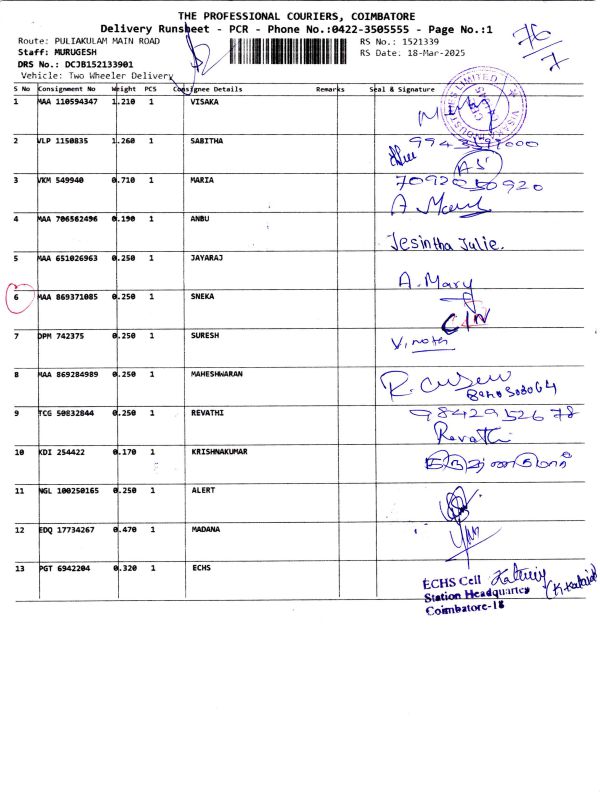 THE PROFESSIONAL COURIERS, COIMBATORE
Delivery Runsheet - PCR - Phone No.:0422-3505555 - Page No.:1
Route: PULIAKULAM MAIN ROAD
RS No.: 1521339
Staff: MURUGESH
RS Date: 18-Mar-2025
DRS No.: DCJB152133901
Vehicle: Two Wheeler Delivery
76/7
S No Consignment No Weight PCS Consignee Details Remarks Seal & Signature
1 MAA 110594347 1.210 1 VISAKA
2 VLP 1150835 1.260 1 SABITHA
3 VKM 549940 0.710 1 MARIA 7092050920
4 MAA 706562496 0.190 1 ANBU Jesintha Julie.
5 MAA 651026963 0.250 1 JAYARAJ A. Mary
6 MAA 869371085 0.250 1 SNEKA C/N
7 DPM 742375 0.250 1 SURESH
8 MAA 869284989 0.250 1 MAHESHWARAN
9 TCG 50832844 0.250 1 REVATHI 9842952678
Revathi
10 KDI 254422 0.170 1 KRISHNAKUMAR
11 NGL 100250165 0.250 1 ALERT
12 EDQ 17734267 0.470 1 MADANA
13 PGT 6942204 0.320 1 ECHS
ECHS Cell
Station Headquarter
Coimbatore-18